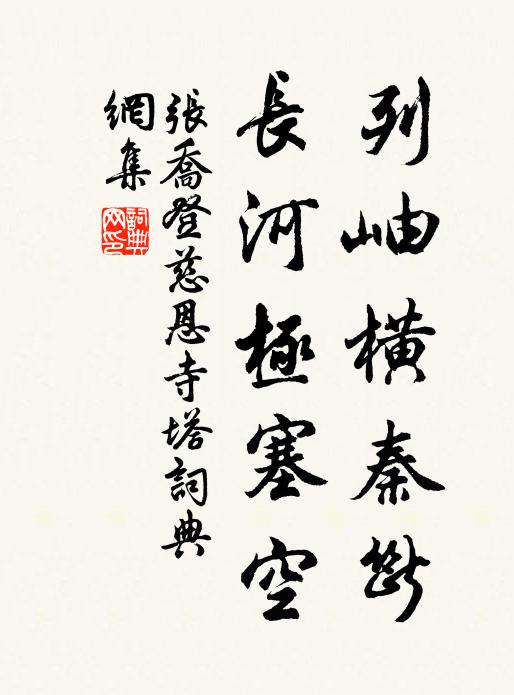 列岫橫秦斷
長河極塞空
張喬登慈恩寺塔詞典
網集
詞典網印